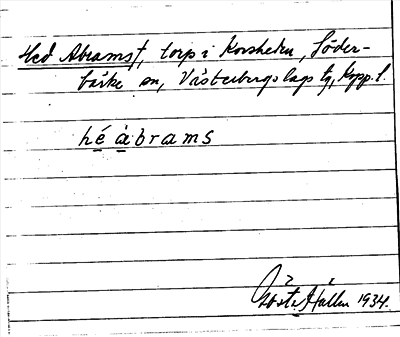 Hed Abrams†, torp i Korsheden, Söder-
bärke sn, Västerbergslags tg, Kopp. l.
hé ábrams
Gösta Hallm 1934.